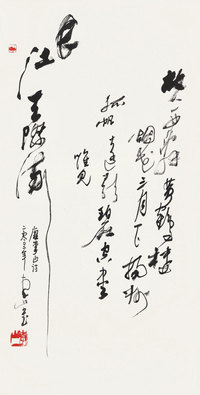 故人西辞黄鹤楼
烟花三月下扬州
孤帆远影碧空尽
惟见
长江天际流
唐李白诗